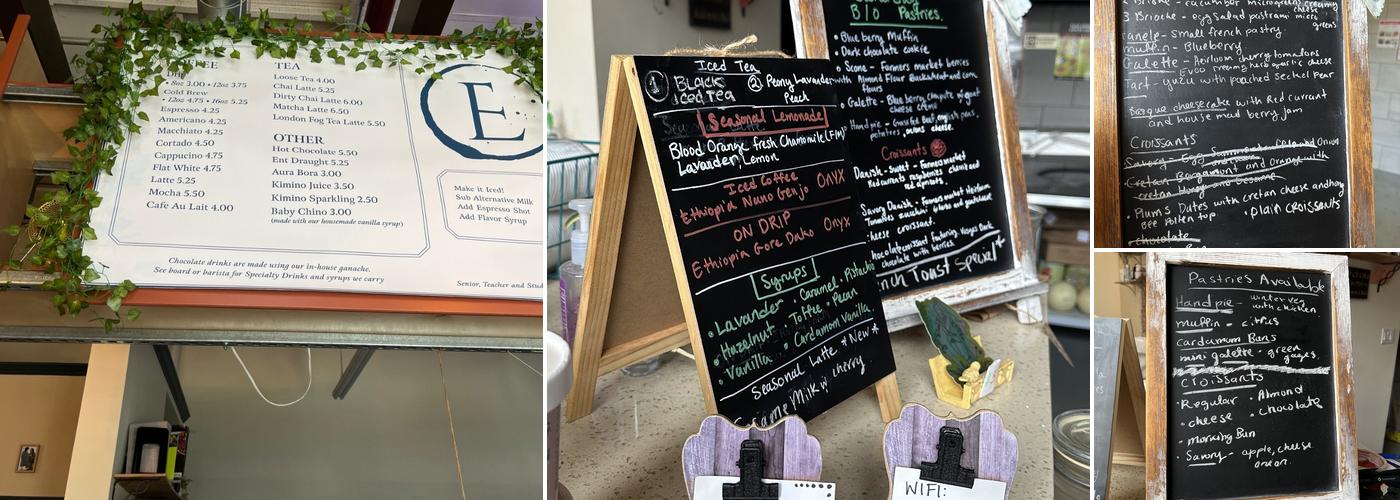 Drip
• 8oz 3.00 • 12oz 3.75
Cold Brew
• 12oz 4.75 • 16oz 5.25
Espresso 4.25
Americano 4.25
Macchiato 4.25
Cortado 4.50
Cappucino 4.75
Flat White 4.75
Latte 5.25
Mocha 5.50
Cafe Au Lait 4.00
TEA
Loose Tea 4.00
Chai Latte 5.25
Dirty Chai Latte 6.00
Matcha Latte 6.50
London Fog Tea Latte 5.50
OTHER
Hot Chocolate 5.50
Ent Draught 5.25
Aura Bora 3.00
Kimino Juice 3.50
Kimino Sparkling 2.50
Baby Chino 3.00
(made with our homemade vanilla syrup)
E
Make it Iced!
Sub Alternative Milk
Add Espresso Shot
Add Flavor Syrup
Chocolate drinks are made using our in-house ganache.
See board or barista for Specialty Drinks and syrups we carry
Senior, Teacher and Stud
Iced Tea
① Black Iced Tea
② Peony Lavender Peach
Seasonal Lemonade
Blood Orange fresh Chamomile
Lavender, Lemon
Iced Coffee
Ethiopia Nano Genjo Onyx
ON DRIP
Ethiopia Gore Dako Onyx
Syrups
• Lavender • Caramel • Pistachio
• Hazelnut • Toffee • Pecan
• Vanilla • Cardamom Vanilla
Seasonal Latte * New *
Milk w cherry
B/O Pastries.
• Blueberry Muffin
• Dark chocolate cookie
• Scone - Farmers market berries
with Almond Flour Buckwheat and corn
flours
• Galette - Blueberry compote yogurt
cheese
Hand pie - Grassfed beef, english peas,
potatoes, onions cheese.
Croissants
Danish - sweet - Farmers market
Red currants raspberries cherries and
red apricots.
Savory Danish - Farmers market Heirloom
Tomatoes zucchini
cheese croissant.
chocolate croissant featuring
chocolate with berries.
Toast Special
WIFI:
- cucumber microgreens creamy
cheese
3 Brioche - egg salad pastrami micro
greens
canele - small french pastry
muffin - Blueberry
Galette - Heirloom cherry tomatoes
Evoo creamy garlic cheese
Tart - yuzu with poached Seckel Pear
Basque cheesecake with Red currant
and house mad berry jam
Croissants
Savory - Egg
Cretan Bergamont and Orange with
cretan Honey and Sesame
• Plums Dates with cretan cheese and honey
Bee Pollen top
• plain croissants
chocolate
Pastries Available
Hand pie -
with chicken.
muffin - citrus
Cardamum Buns
mini galette - green
gages.
Croissants
• Regular • Almond
• cheese • chocolate
• morning Bun
• Savory - apple, cheese
onion.